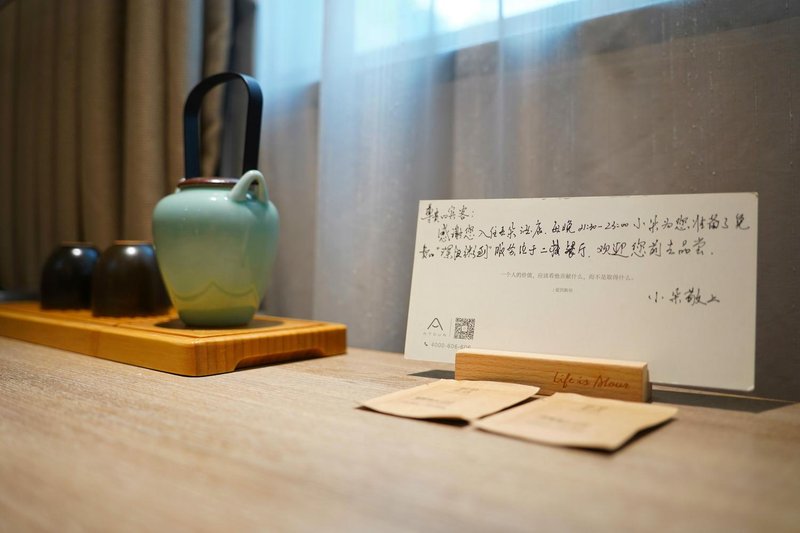 尊敬的宾客：
感谢您入住亚朵酒店，每晚21:30-23:00小朵为您准备了免
费的“深夜粥到”服务位于二楼餐厅，欢迎您前去品尝。
一个人的价值，应该看他贡献什么，而不是取得什么。
小朵敬上
ATOUR
Life is Atour